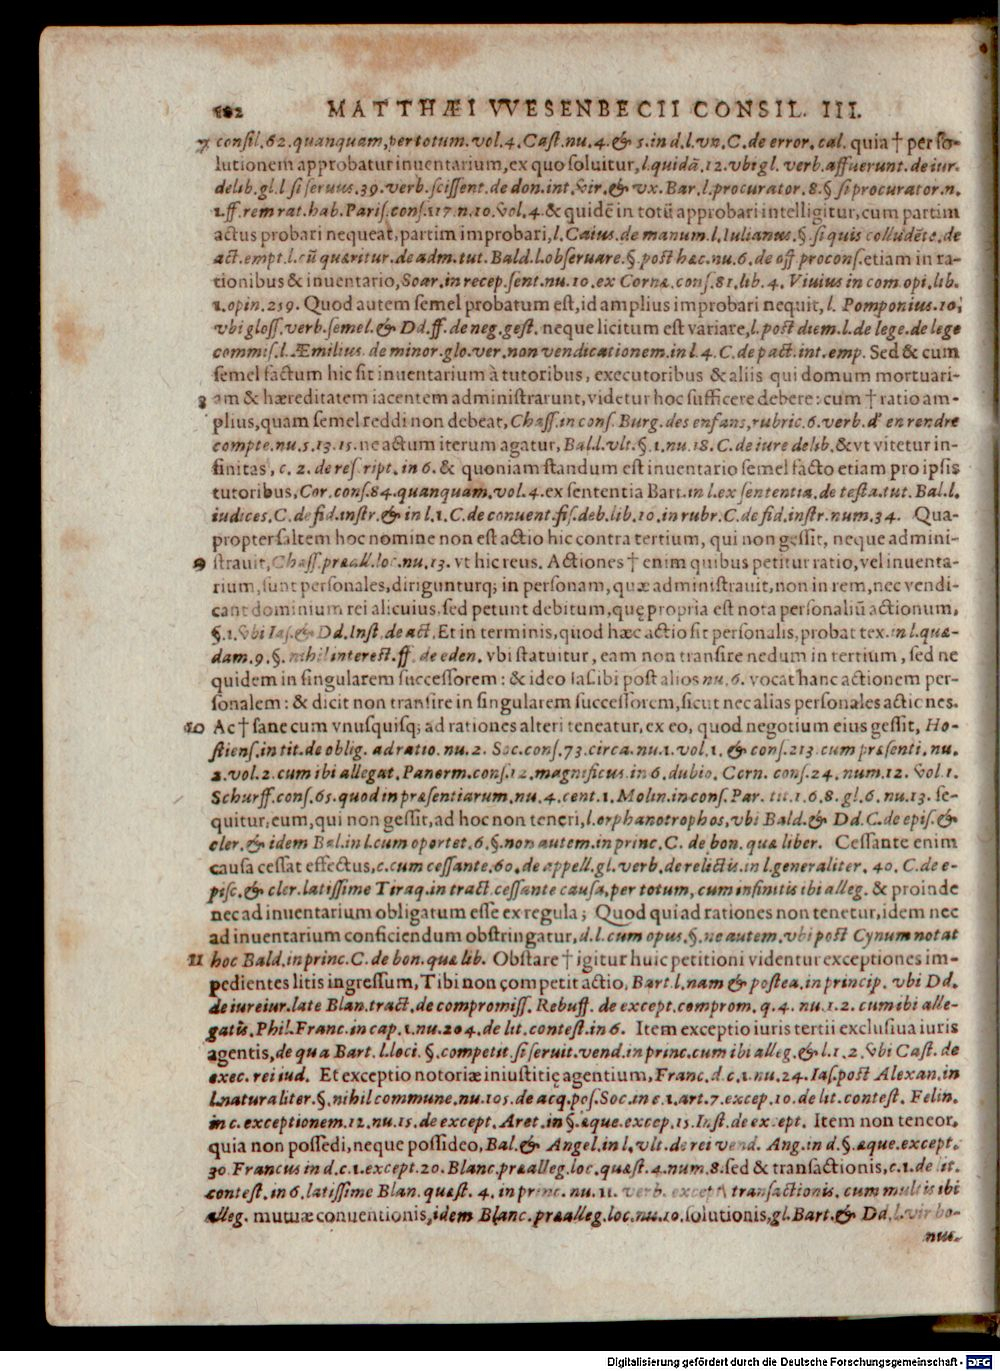 182 MATTHÆI VVESENBECII CONSIL. III.
7 consil. 62. quanquam, per totum. vol. 4. Cast. nu. 4. & 5. in d. l. vn. C. de error. cal. quia † per so-
lutionem approbatur inuentarium, ex quo soluitur, l. quidã. 12. vbi gl. verb. affuerunt. de iur.
delib. gl. l si seruus. 39. verb. scissent. de don. int. vir. & vx. Bar. l. procurator. 8. § si procurator. n.
1. ff. rem rat. hab. Paris. cons. 117. n. 10. vol. 4. & quidẽ in totũ approbari intelligitur, cum partim
actus probari nequeat, partim improbari, l. Caius. de manum. l. Iulianus. §. si quis colludẽte. de
act. empt. l. cũ quæritur. de adm. tut. Bald. l. obseruare. §. post hæc. nu. 6. de off procons. etiam in ra-
tionibus & inuentario, Soar. in recep. sent. nu. 10. ex Cornæ. cons. 81. lib. 4. Viuius in com. opi. lib.
1. opin. 259. Quod autem semel probatum est, id amplius improbari nequit, l. Pomponius. 10;
vbi gloss. verb. semel. & Dd. ff. de neg. gest. neque licitum est variare, l. post diem. l. de lege. de lege
commis. l. Æmilius. de minor. glo. ver. non vendicationem. in l. 4. C. de pact. int. emp. Sed & cum
semel factum hic sit inuentarium à tutoribus, executoribus & aliis qui domum mortuari-
8 am & hæreditatem iacentem administrarunt, videtur hoc sufficere debere: cum † ratio am-
plius, quam semel reddi non debeat, Chass. in cons. Burg. des enfans. rubric. 6. verb. d' en rendre
compte. nu. 5. 13. 15. ne actum iterum agatur, Bal. l. vlt. §. 1. nu. 18. C. de iure delib. & vt vitetur in-
finitas, c. 2. de rescript. in 6. & quoniam standum est inuentario semel facto etiam pro ipsis
tutoribus, Cor. cons. 84. quanquam. vol. 4. ex sententia Bart. in l. ex sententia. de testa. tut. Bal. l.
iudices. C. de fid. instr. & in l. 1. C. de conuent. fis. deb. lib. 10. in rubr. C. de fid. instr. num. 34. Qua-
propter saltem hoc nomine non est actio hic contra tertium, qui non gessit, neque admini-
9 strauit, Chass. præall. loc. nu. 13. vt hic reus. Actiones † enim quibus petitur ratio, vel inuenta-
rium, sunt personales, dirigunturq; in personam, quæ administrauit, non in rem, nec vendi-
cant dominium rei alicuius, sed petunt debitum, quę propria est nota personaliũ actionum,
§. 1. vbi Ias. & Dd. Inst. de act. Et in terminis, quod hæc actio sit personalis, probat tex. in l. quæ-
dam. 9. §. nihil interest. ff. de eden. vbi statuitur, eam non transire nedum in tertium, sed ne
quidem in singularem successorem: & ideo Ias. ibi post alios nu. 6. vocat hanc actionem per-
sonalem: & dicit non transire in singularem successorem, sicut nec alias personales actiones.
10 Ac † sane cum vnusquisq; ad rationes alteri teneatur, ex eo, quod negotium eius gessit, Ho-
stiens. in tit. de oblig. ad ratio. nu. 2. Soc. cons. 73. circa. nu. 1. vol. 1. & cons. 213. cum præsenti. nu.
2. vol. 2. cum ibi allegat. Panorm. cons. 12. magnificus. in 6. dubio. Corn. cons. 24. num. 12. vol 1.
Schurff. cons. 65. quod in præsentiarum. nu. 4. cent. 1. Molin. in cons. Par. tit. 1. 6. 8. gl. 6. nu. 13. se-
quitur, eum, qui non gessit, ad hoc non teneri, l. orphanotrophos, vbi Bald. & Dd. C. de epis. &
cler. & idem Bal. in l. cum oportet. 6. §. non autem. in princ. C. de bon. quæ liber. Cessante enim
causa cessat effectus, c. cum cessante. 60. de appell. gl. verb. derelictis. in l. generaliter. 40. C. de e-
pisc. & cler. latissime Tiraq. in tract. cessante causa, per totum, cum infinitis ibi alleg. & proinde
nec ad inuentarium obligatum esse ex regula; Quod qui ad rationes non tenetur, idem nec
ad inuentarium conficiendum obstringatur, d. l. cum opus. §. ne autem. vbi post Cynum notat
11 hoc Bald. in princ. C. de bon. quæ lib. Obstare † igitur huic petitioni videntur exceptiones im-
pedientes litis ingressum, Tibi non competit actio, Bart. l. nam & postea. in princip. vbi Dd.
de iureiur. late Blan. tract. de compromiss. Rebuff. de except. comprom. q. 4. nu. 1. 2. cum ibi alle-
gatis. Phil. Franc. in cap. 1. nu. 204. de lit. contest. in 6. Item exceptio iuris tertii exclusiua iuris
agentis, de qua Bart. l. loci. §. competit. si seruit. vend. in princ. cum ibi alleg. & l. 1. 2. vbi Cast. de
exec. rei iud. Et exceptio notoriæ iniustitię agentium, Franc. d. c. 1. nu. 24. Ias. post Alexan. in
l. naturaliter. §. nihil commune. nu. 105. de acq. pos. Soc. in c. 1. art. 7. excep. 10. de lit. contest. Felin.
in c. exceptionem. 12. nu. 15. de except. Aret. in §. æque. excep. 15. Inst. de except. Item non teneor,
quia non possedi, neque possideo, Bal. & Angel. in l. vlt. de rei vend. Ang. in d. §. æque. except.
30. Francus in d. c. 1. except. 20. Blanc. præalleg. loc. quæst. 4. num. 8. sed & transactionis, c. 1. de lit.
contest. in 6. latissime Blan. quæst. 4. in princ. nu. 11. verb. except. transactionis. cum multis ibi
alleg. mutuæ conuentionis, idem Blanc. præalleg. loc. nu. 10. solutionis, gl. Bart. & Dd. l. vir bo-
nus.
Digitalisierung gefördert durch die Deutsche Forschungsgemeinschaft - DFG